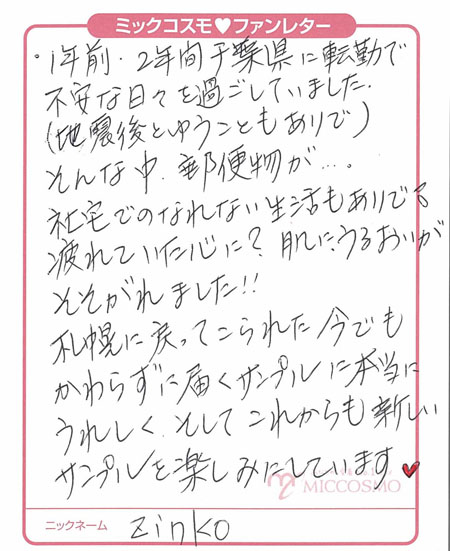 ミックコスモ♥ファンレター
・1年前・2年間千葉県に転勤で
不安な日々を過ごしていました.
(地震後とゆうこともありで)
そんな中、郵便物が….
社宅でのなれない生活もありで
疲れていた心に?肌に、うるおいが
そそがれました!!
札幌に戻ってこられた今でも
かわらずに届くサンプルに本当に
うれしく、そしてこれからも新しい
サンプルを楽しみにしています♥
MICCOSMO
ニックネーム zinko